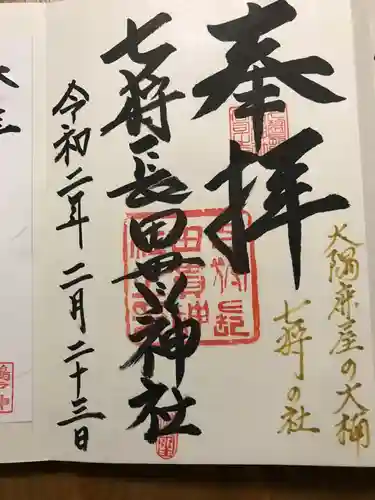 大隅鹿屋の大楠
七狩の社
奉拝
七狩長田貫神社
令和二年二月二十三日